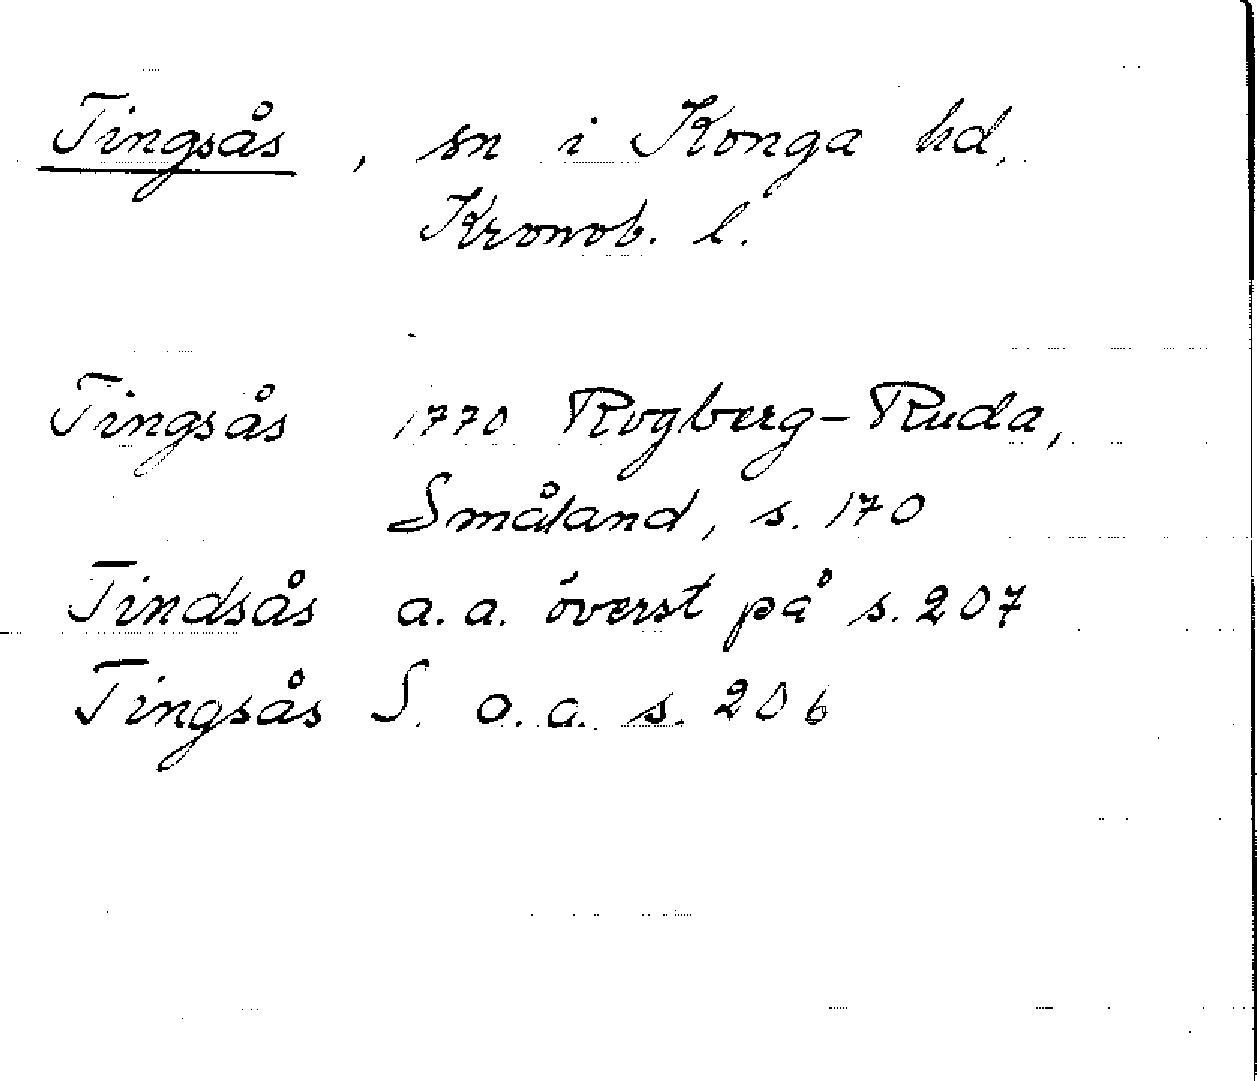 Tingsås, sn i Konga hd,
Kronob. l.
Tingsås 1770 Rogberg-Ruda,
Småland, s. 170
Tindsås a.a. överst på s. 207
Tingsås S. a.a. s. 206